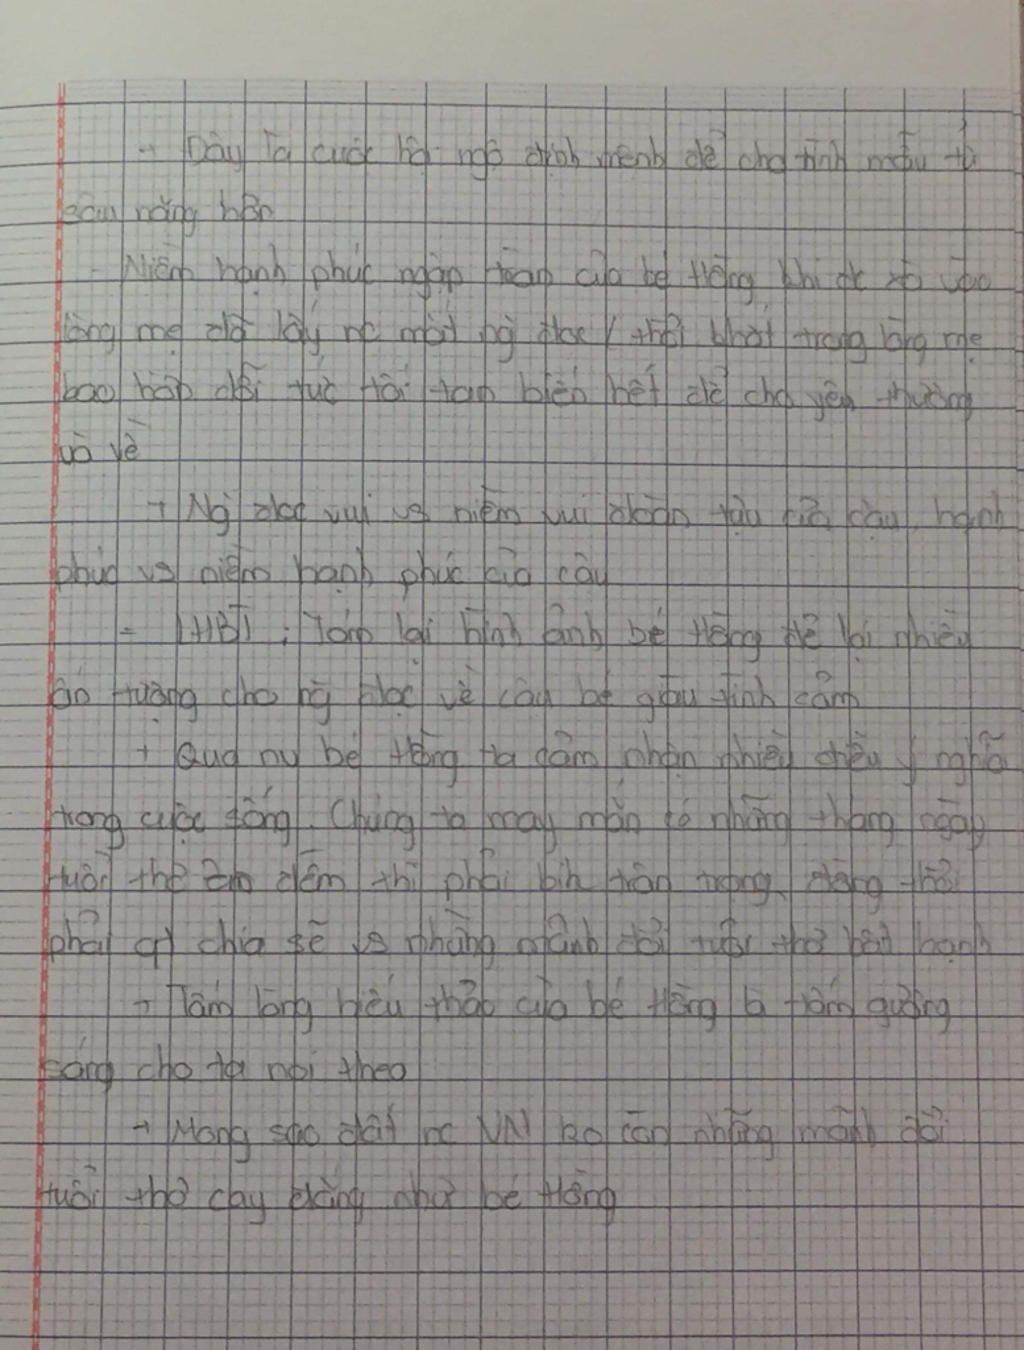 + Đây là cuộc hội ngộ định mệnh để cho tình mẫu tử
sâu nặng hơn
- Niềm hạnh phúc ngập tràn của bé Hồng khi đc sà vào
lòng mẹ đã lấy nc mắt ng đọc / thổi khát trong lòng mẹ
bao hờn dỗi tức tối tan biến hết để cho yêu thương
ùa về
+ Ng đọc vui vs niềm vui đoàn tụ của cậu, hạnh
phúc vs niềm hạnh phúc của cậu
= Tóm lại hình ảnh bé Hồng để lại nhiều
ấn tượng cho ng đọc về cậu bé giàu tình cảm
+ Qua nv bé Hồng ta cảm nhận nhiều điều ý nghĩa
trong cuộc sống. Chúng ta may mắn có những tháng ngày
tuổi thơ êm đềm thì phải bik trân trọng, đồng thời
phải chia sẽ vs những mảnh đời tuổi thơ bất hạnh
+ Tấm lòng hiếu thảo của bé Hồng là tấm gương
sáng cho ta noi theo
+ Mong sao đất nc VN ko còn những mảnh đời
tuổi thơ cay đắng như bé Hồng